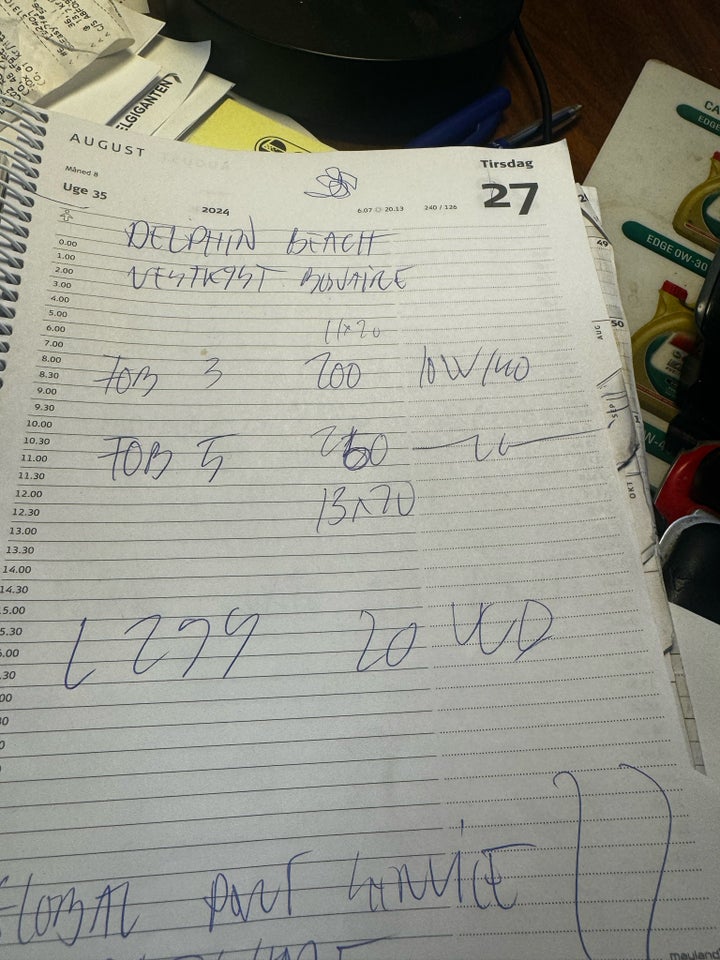 ELGIGANTEN
AUGUST
Måned 8
Uge 35
2024
6.07 20.13
240 / 126
Tirsdag
27
0.00 DELPHIN BEACH
1.00
2.00 VESTKYST BONAIRE
3.00
4.00
5.00
6.00 11x20
7.00
8.00
8.30 FOB 3 200 10W/40
9.00
9.30
10.00
10.30
11.00 FOB 5 260
11.30
12.00
12.30 13x20
13.00
13.30
14.00
14.30
15.00
5.30
L 299 20 VCD
6.00
.30
00
30
GLOBAL PORT SERVICE
mayland
EDGE
EDGE 0W-30
49
AUG
50
SEP
OKT
W-4